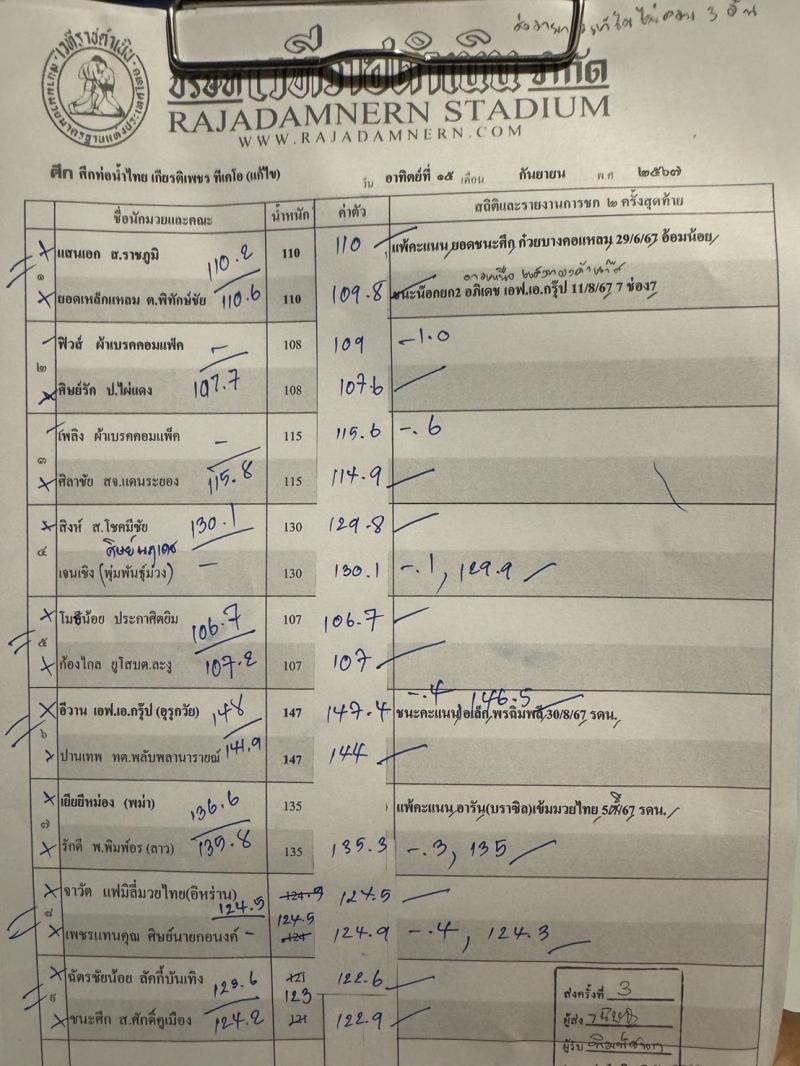 3
บริษัท เวทีราชดำเนิน จำกัด
RAJADAMNERN STADIUM
WWW.RAJADAMNERN.COM
ศึก ศึกท่อน้ำไทย เกียรติเพชร ทีเคโอ (แก้ไข) วัน อาทิตย์ที่ ๑๕ เดือน กันยายน พ.ศ ๒๕๖๗
ชื่อนักมวยและคณะ น้ำหนัก ค่าตัว สถิติและรายงานการชก ๒ ครั้งสุดท้าย
๑
แสนเอก ส.ราชภูมิ 110.2 110 110 แพ้คะแนน ยอดชนะศึก ก๋วยบางคอแหลม 29/6/67 อ้อมน้อย
ยอดเหล็กแหลม ต.พิทักษ์ชัย 110.6 110 109.8 ชนะน๊อกยก2 อภิเดช เอฟ.เอ.กรุ๊ป 11/8/67 7 ช่อง7
๒
ฟิวส์ ผ้าเบรคคอมแพ็ค - 108 109 -1.0
ศิษย์รัก ป.ไผ่แดง 107.7 108 107.6
๓
เพลิง ผ้าเบรคคอมแพ็ค - 115 115.6 -.6
ศิลาชัย สจ.แดนระยอง 115.8 115 114.9
๔
สิงห์ ส.โชคมีชัย 130.1 130 129.8
เจนเชิง (พุ่มพันธุ์ม่วง) - 130 130.1 -.1, 129.9
๕
โมธิน้อย ประกาศิตยิม 106.7 107 106.7
ก้องไกล ยูโสบต.ละงู 107.2 107 107
-.4 146.5
๖
อีวาน เอฟ.เอ.กรุ๊ป (อุรุกวัย) 148 147 147.4 ชนะคะแนน อเล็ก พรฉิมพลี 30/8/67 รดน.
ปานเทพ ทต.พลับพลานารายณ์ 141.9 147 144
๗
เยียยีหม่อง (พม่า) 136.6 135 แพ้คะแนน อารัน(บราซิล)เข้มมวยไทย 5/67 รดน.
รักดี พ.พิมพ์อร (ลาว) 135.8 135 135.3 -.3, 135
๘
จาวัด แฟมิลี่มวยไทย(อิหร่าน) 124.5 124.5
124.5
เพชรแทนคุณ ศิษย์นายกอนงค์ - 124 124.9 -.4, 124.3
๙
ฉัตรชัยน้อย ลัคกี้บันเทิง 123.6 121 122.6
123
ชนะศึก ส.ศักดิ์คูเมือง 124.2 121 122.9
ส่งครั้งที่ 3
ผู้ส่ง
ผู้รับ